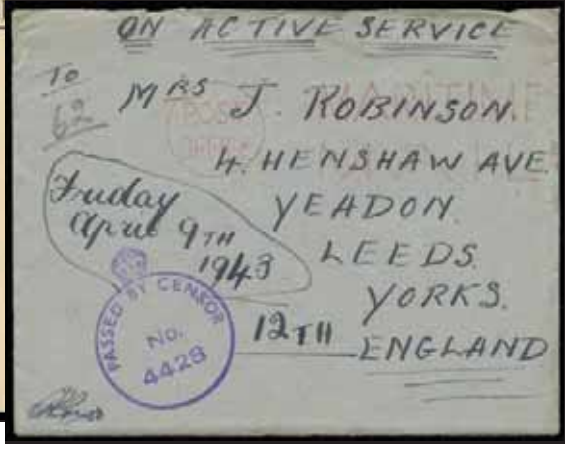 ON ACTIVE SERVICE
To
62
MRS J. ROBINSON.
4. HENSHAW AVE
YEADON.
LEEDS.
YORKS.
ENGLAND
Friday
April 9TH
1943
12TH
PASSED BY CENSOR
No.
4428
MARITIME